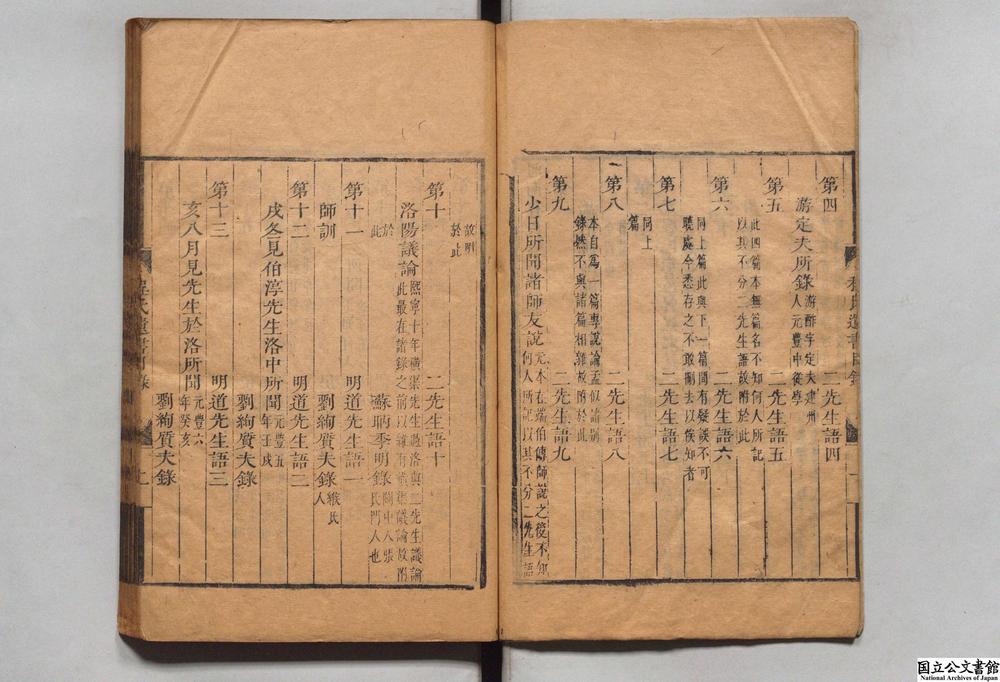 第四
二先生語四
游定夫所錄
游酢字定夫建州
人元豐中從學
第五
二先生語五
此四篇本無篇名不知何人所記
以其不分二先生語故附於此
第六
二先生語六
同上篇此與下一篇間有疑誤不可
曉處今悉存之不敢刪去以俟知者
第七
二先生語七
同上
篇
第八
二先生語八
本自為一篇專說論孟似諸別
錄然不與諸篇相雜故附於此
第九
二先生語九
少日所聞諸師友說
元本在端伯傳師說之後不知
何人所記以其不分二先生語
故附
於此
第十
二先生語十
洛陽議論
熙寧十年橫渠先生過洛與二先生議論
此最在諸錄之前以雜有橫渠議論故附
於
此
蘇昞季明錄
關中人張
氏門人也
第十一
明道先生語一
師訓
劉絢質夫錄
緱氏
人
第十二
明道先生語二
戌冬見伯淳先生洛中所聞
元豐五
年壬戌
劉絢質夫錄
第十三
明道先生語三
亥八月見先生於洛所聞
元豐六
年癸亥
劉絢質夫錄
国立公文書館
National Archives of Japan